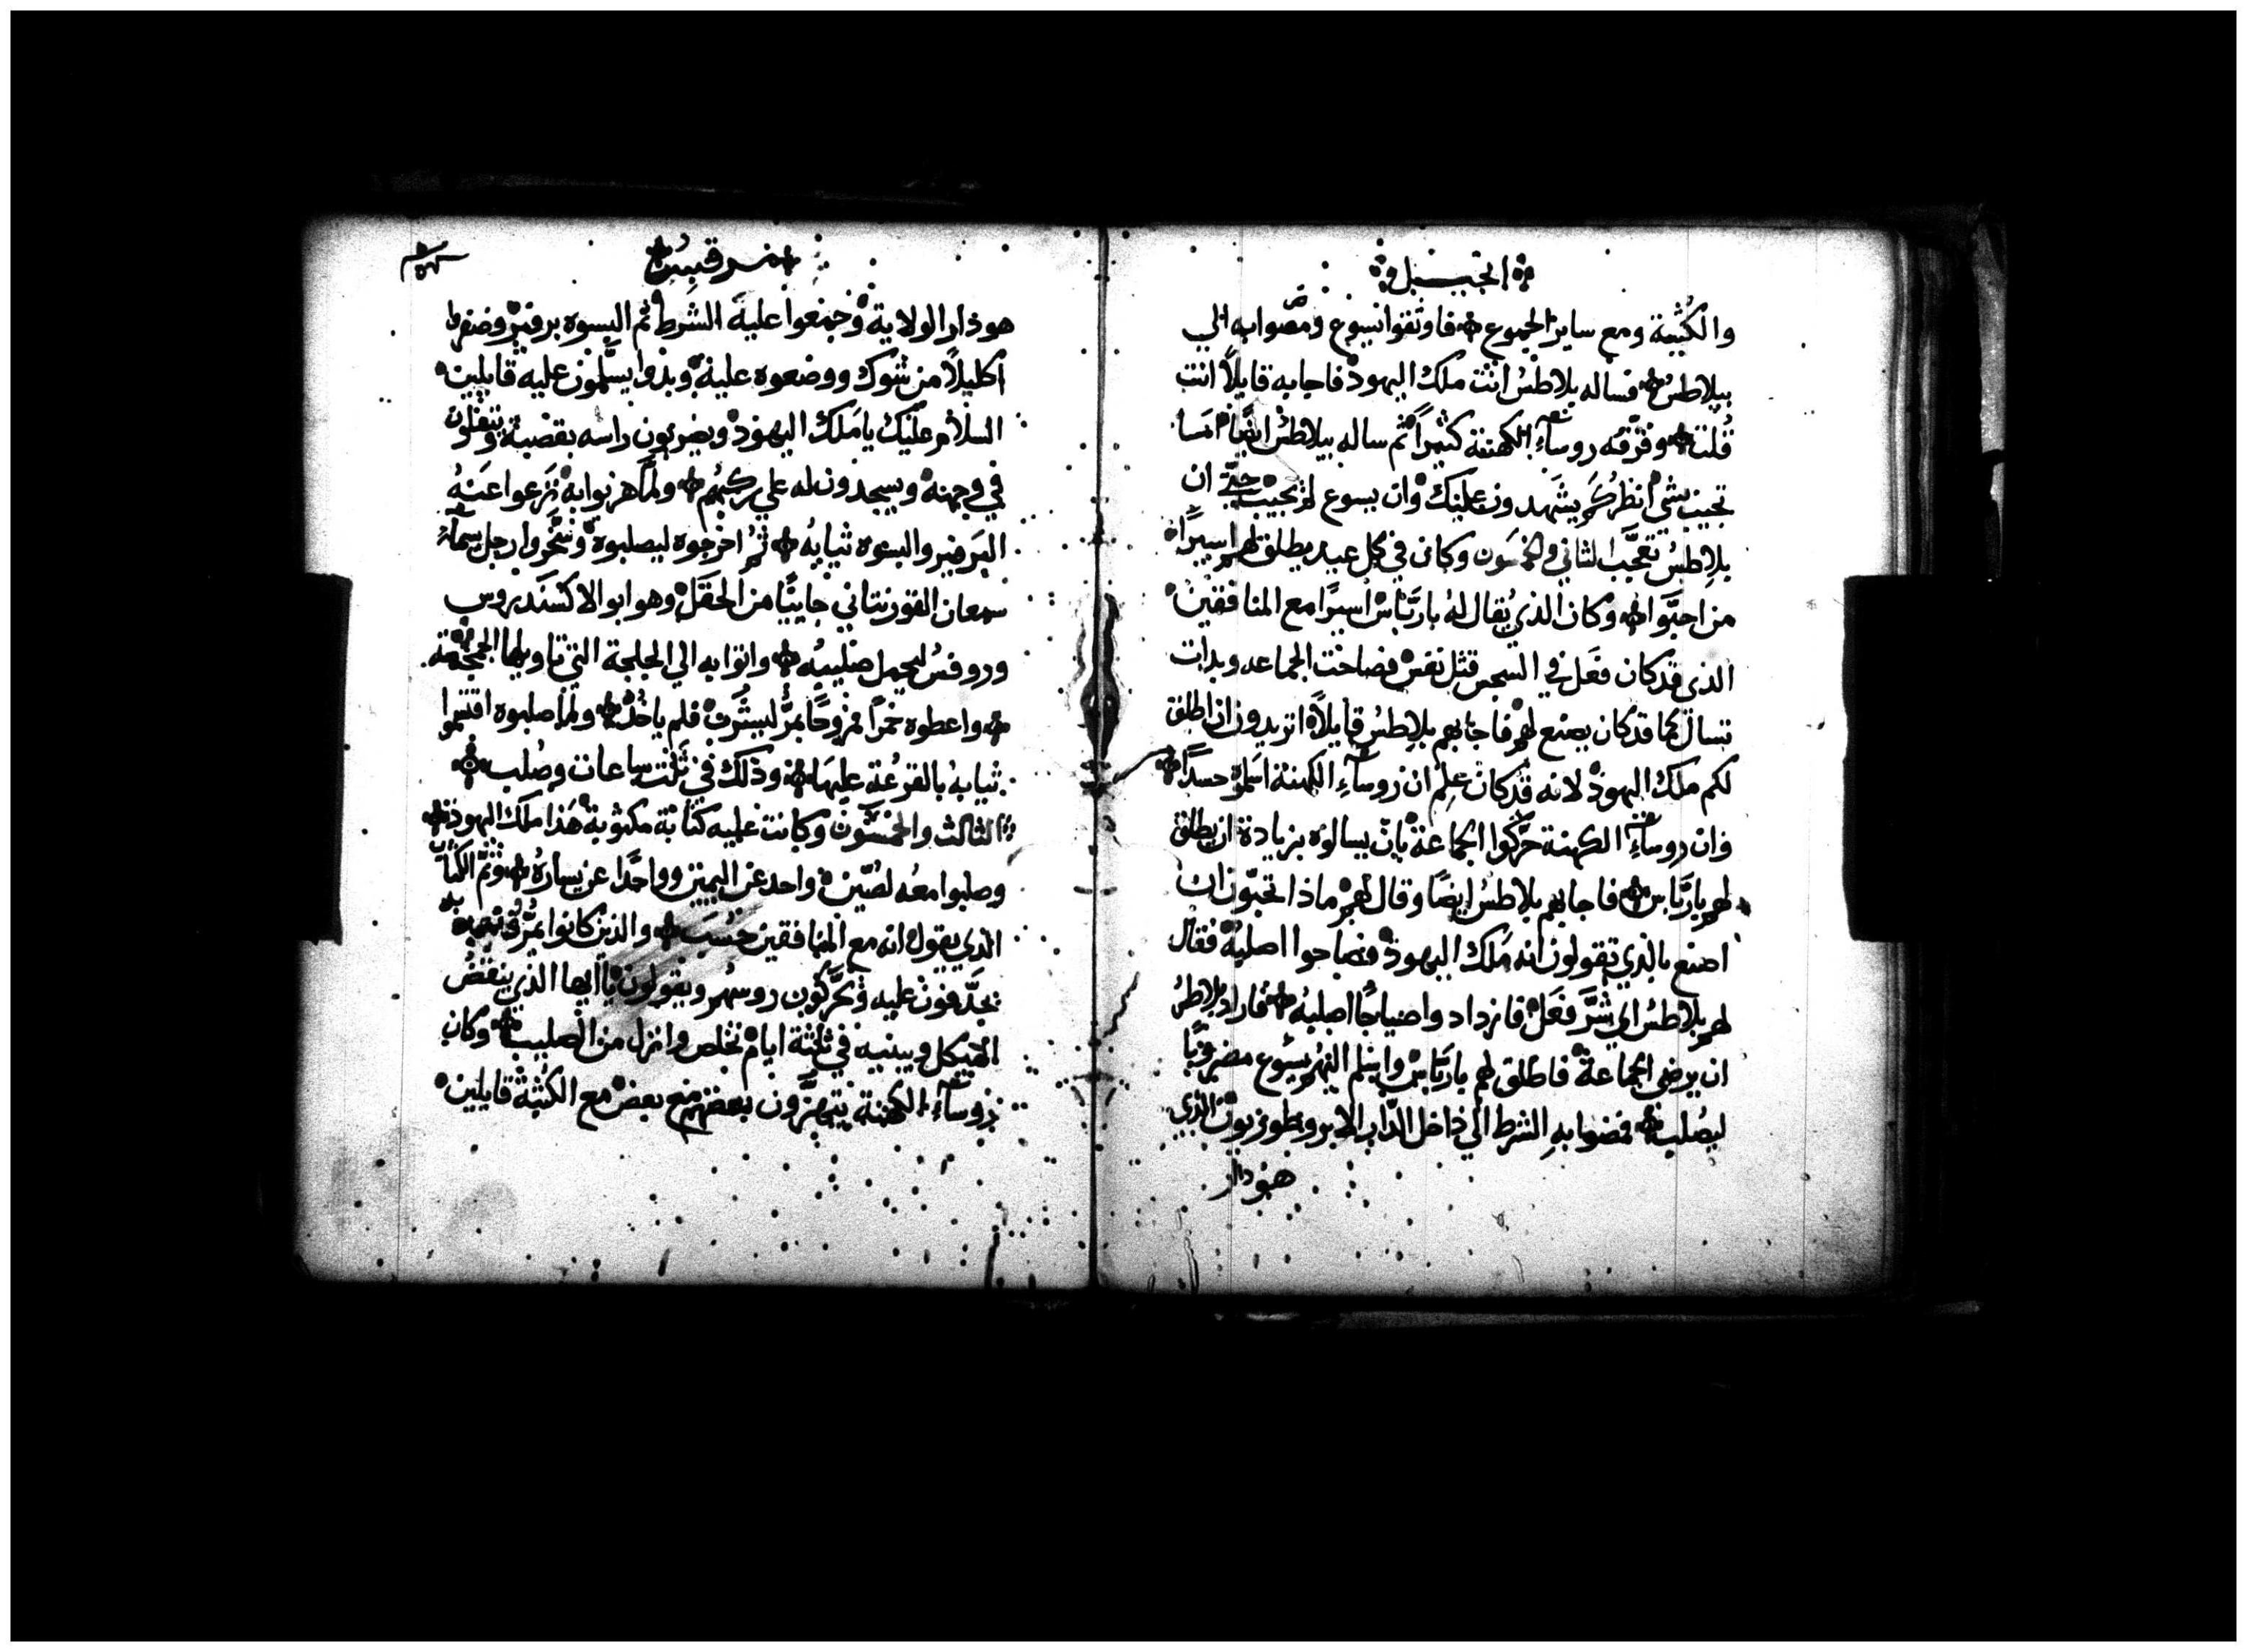 انجيل
والكتبة ومع ساير الجموع فاوثقوا يسوع ومضوا به الي
بيلاطس فساله بلاطس انت ملك اليهود فاجابه قايلاً انت
قلت وقرفه روساء الكهنة كثيراً ثم ساله بيلاطس ايضاً اما
تجيب بشي انظر كم يشهدون عليك وان يسوع لم يجيب حتي ان
بلاطس تعجب الثاني والخمسون وكان في كل عيد يطلق لهم اسيراً
من احبوا وكان الذي يقال له باربّاس اسيراً مع المنافقين
الذي قد كان فعل في السجس قتل نفس فصاحت الجماعه وبدات
تسال كما قد كان يصنع لهم فاجابهم بلاطس قايلاً اتريدون ان اطلق
لكم ملك اليهود لانه قد كان علم ان روساء الكهنة اسلموه حسداً
وان روساء الكهنة حركوا الجماعة بان يسالوه بزيادة ان يطلق
لهم باربّاس فاجابهم بلاطس ايضاً وقال لهم ماذا تحبّون ان
اصنع بالذي تقولون انه ملك اليهود فصاحوا اصلبه فقال
لهم بلاطس اي شر فعل فازداد واصياحاً اصلبه فاراد بلاطس
ان يرضي الجماعة فاطلق لهم باربّاس واسلم اليهم يسوع مضروباً
ليصلب فمضوا به الشرط الي داخل الدار الابروطوريون الذي
هو دار
مرقس
هو دار الولاية وجمعوا عليه الشرط ثم البسوه برفير وضفروا
اكليلاً من شوك ووضعوه عليه وبدوا يسلّمون عليه قايلين
السلام عليك يا ملك اليهود ويضربون راسه بقصبة ويتفلون
في وجهه ويسجدون له علي ركبهم ولمّا هزيوا به نزعوا عنه
البرفير والبسوه ثيابه ثم اخرجوه ليصلبوه وسخّروا رجل يسما
سمعان القورنتاني جايياً من الحقل وهو ابو الاكسندروس
وروفس ليحمل صليبه واتوا به الي الجلجة التي تاويلها الجمجمة
واعطوه خمراً ممزوجاً بمر ليشرب فلم ياخذه ولما صلبوه اقتسموا
ثيابه بالقرعة عليها وذلك في ثلت ساعات وصلب
الثالث والخمسون وكانت عليه كتابة مكتوبة هذا ملك اليهود
وصلبوا معه لصّين واحد عن اليمين وواحداً عن يساره وتم الكتاب
الذي يقول انه مع المنافقين حسب والذين كانوا يمرّون به
يجدّفون عليه ويحرّكون روسهم ويقولون يا ايها الذي ينقض
الهيكل ويبنيه في ثلثة ايام تخلص وانزل من الصليب وكان
روساء الكهنة يتهزّون بعضهم مع بعض مع الكتبة قايلين